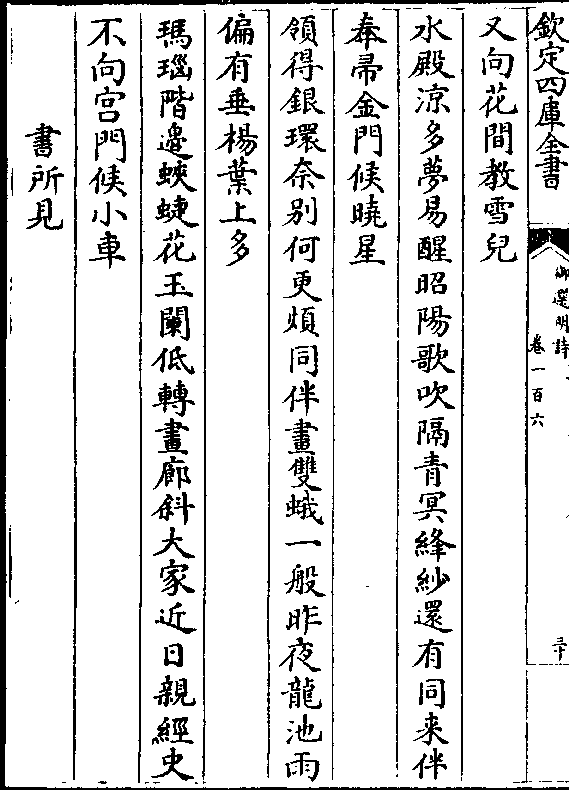 欽定四庫全書
御選明詩
卷一百六
三十
又向花間教雪兒
水殿涼多夢易醒昭陽歌吹隔青冥絳紗還有同來伴
奉帚金門候曉星
領得銀環奈别何更煩同伴畫雙蛾一般昨夜龍池雨
偏有垂楊葉上多
瑪瑙階邊蛺蜨花玉闌低轉畫廊斜大家近日親經史
不向宮門候小車
書所見